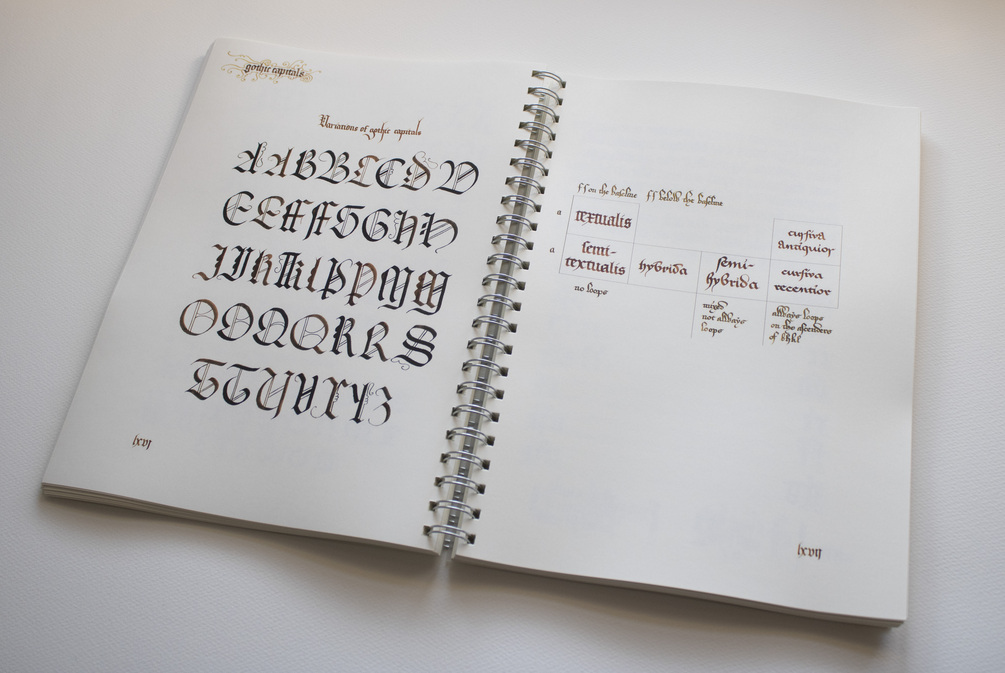 gothic capitals
Variations of gothic capitals
A A B B C C D D
E E F F G G H H
J J K K L P P M M
O O Q Q R R S
G T U V X Y Z
lxvj
ſ f on the baseline ſ f below the baseline
a textualis
cursiva antiquior
a semi-textualis
hybrida
semi-hybrida
cursiva recentior
no loops
mixed
not always
loops
always loops
on the ascenders
of bhkl
lxvij